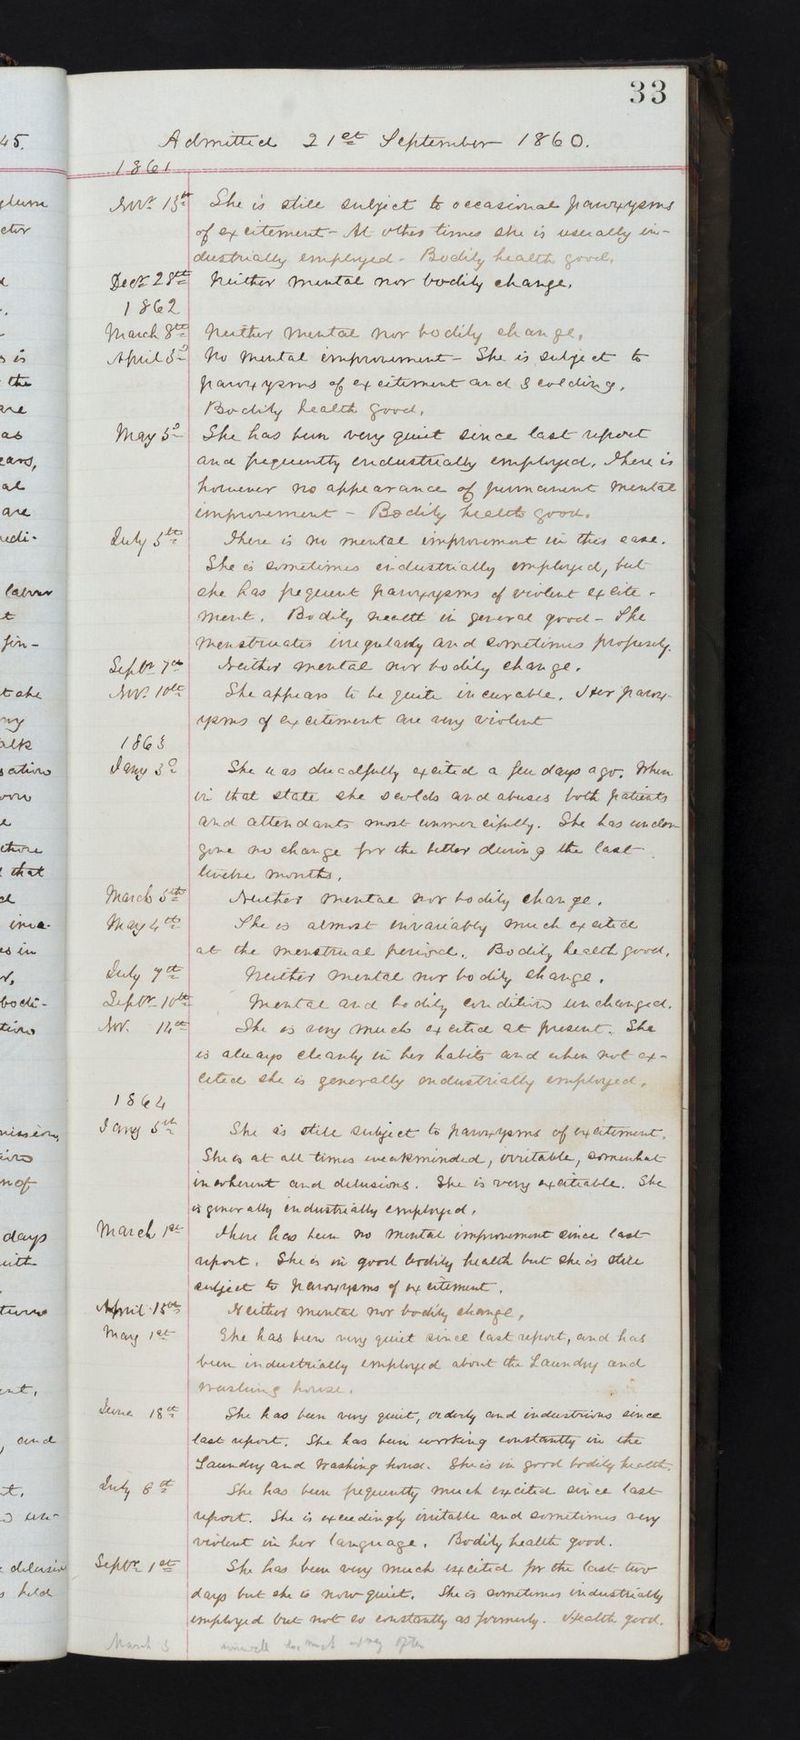 33
Admitted 21st September 1860.
1861
Novr 15th She is still subject to occasional paroxysms
of excitement - At other times she is usually in-
dustrially employed - Bodily health good.
Decr 28th Neither mental nor bodily change.
1862
March 8th Neither mental nor bodily change.
April 3d No mental improvement - She is subject to
paroxysms of excitement and scolding.
Bodily health good.
May 5d She has been very quiet since last report
and frequently industrially employed. There is
however no appearance of permanent mental
improvement - Bodily health good.
July 5th There is no mental improvement in this case.
She is sometimes industrially employed, but
she has frequent paroxysms of violent excite-
ment. Bodily health in general good - She
menstruates irregularly and sometimes profusely.
Septr 7th Neither mental nor bodily change.
Novr 10th She appears to be quite incurable. Her parox-
ysms of excitement are very violent
1863
Jany 3d She was dreadfully excited a few days ago. When
in that state she scolds and abuses both patients
and attendants most unmercifully. She has under-
gone no change for the better during the last
twelve months.
March 5th Neither mental nor bodily change.
May 4th She is almost invariably much excited
at the menstrual period. Bodily health good.
July 7th Neither mental nor bodily change.
Septr 10th Mental and bodily condition unchanged.
Nov. 14th She is very much excited at present. She
is always cleanly in her habits and when not ex-
cited she is generally industrially employed.
1864
Jany 5th She is still subject to paroxysms of excitement.
She is at all times weakminded, irritable, somewhat
incoherent and delusions. She is very excitable. She
is generally industrially employed.
March 1st There has been no mental improvement since last
report. She is in good bodily health but she is still
subject to paroxysms of excitement.
April 15th Neither mental nor bodily change.
May 1st She has been very quiet since last report, and has
been industrially employed about the Laundry and
washing house.
June 18th She has been very quiet, orderly and industrious since
last report. She has been working constantly in the
Laundry and Washing house. She is in good bodily health.
July 8th She has been frequently much excited since last
report. She is exceedingly irritable and sometimes very
violent in her language. Bodily health good.
Septr 1st She has been very much excited for the last two
days but she is now quiet. She is sometimes industrially
employed but not so constantly as formerly. Health good.
March